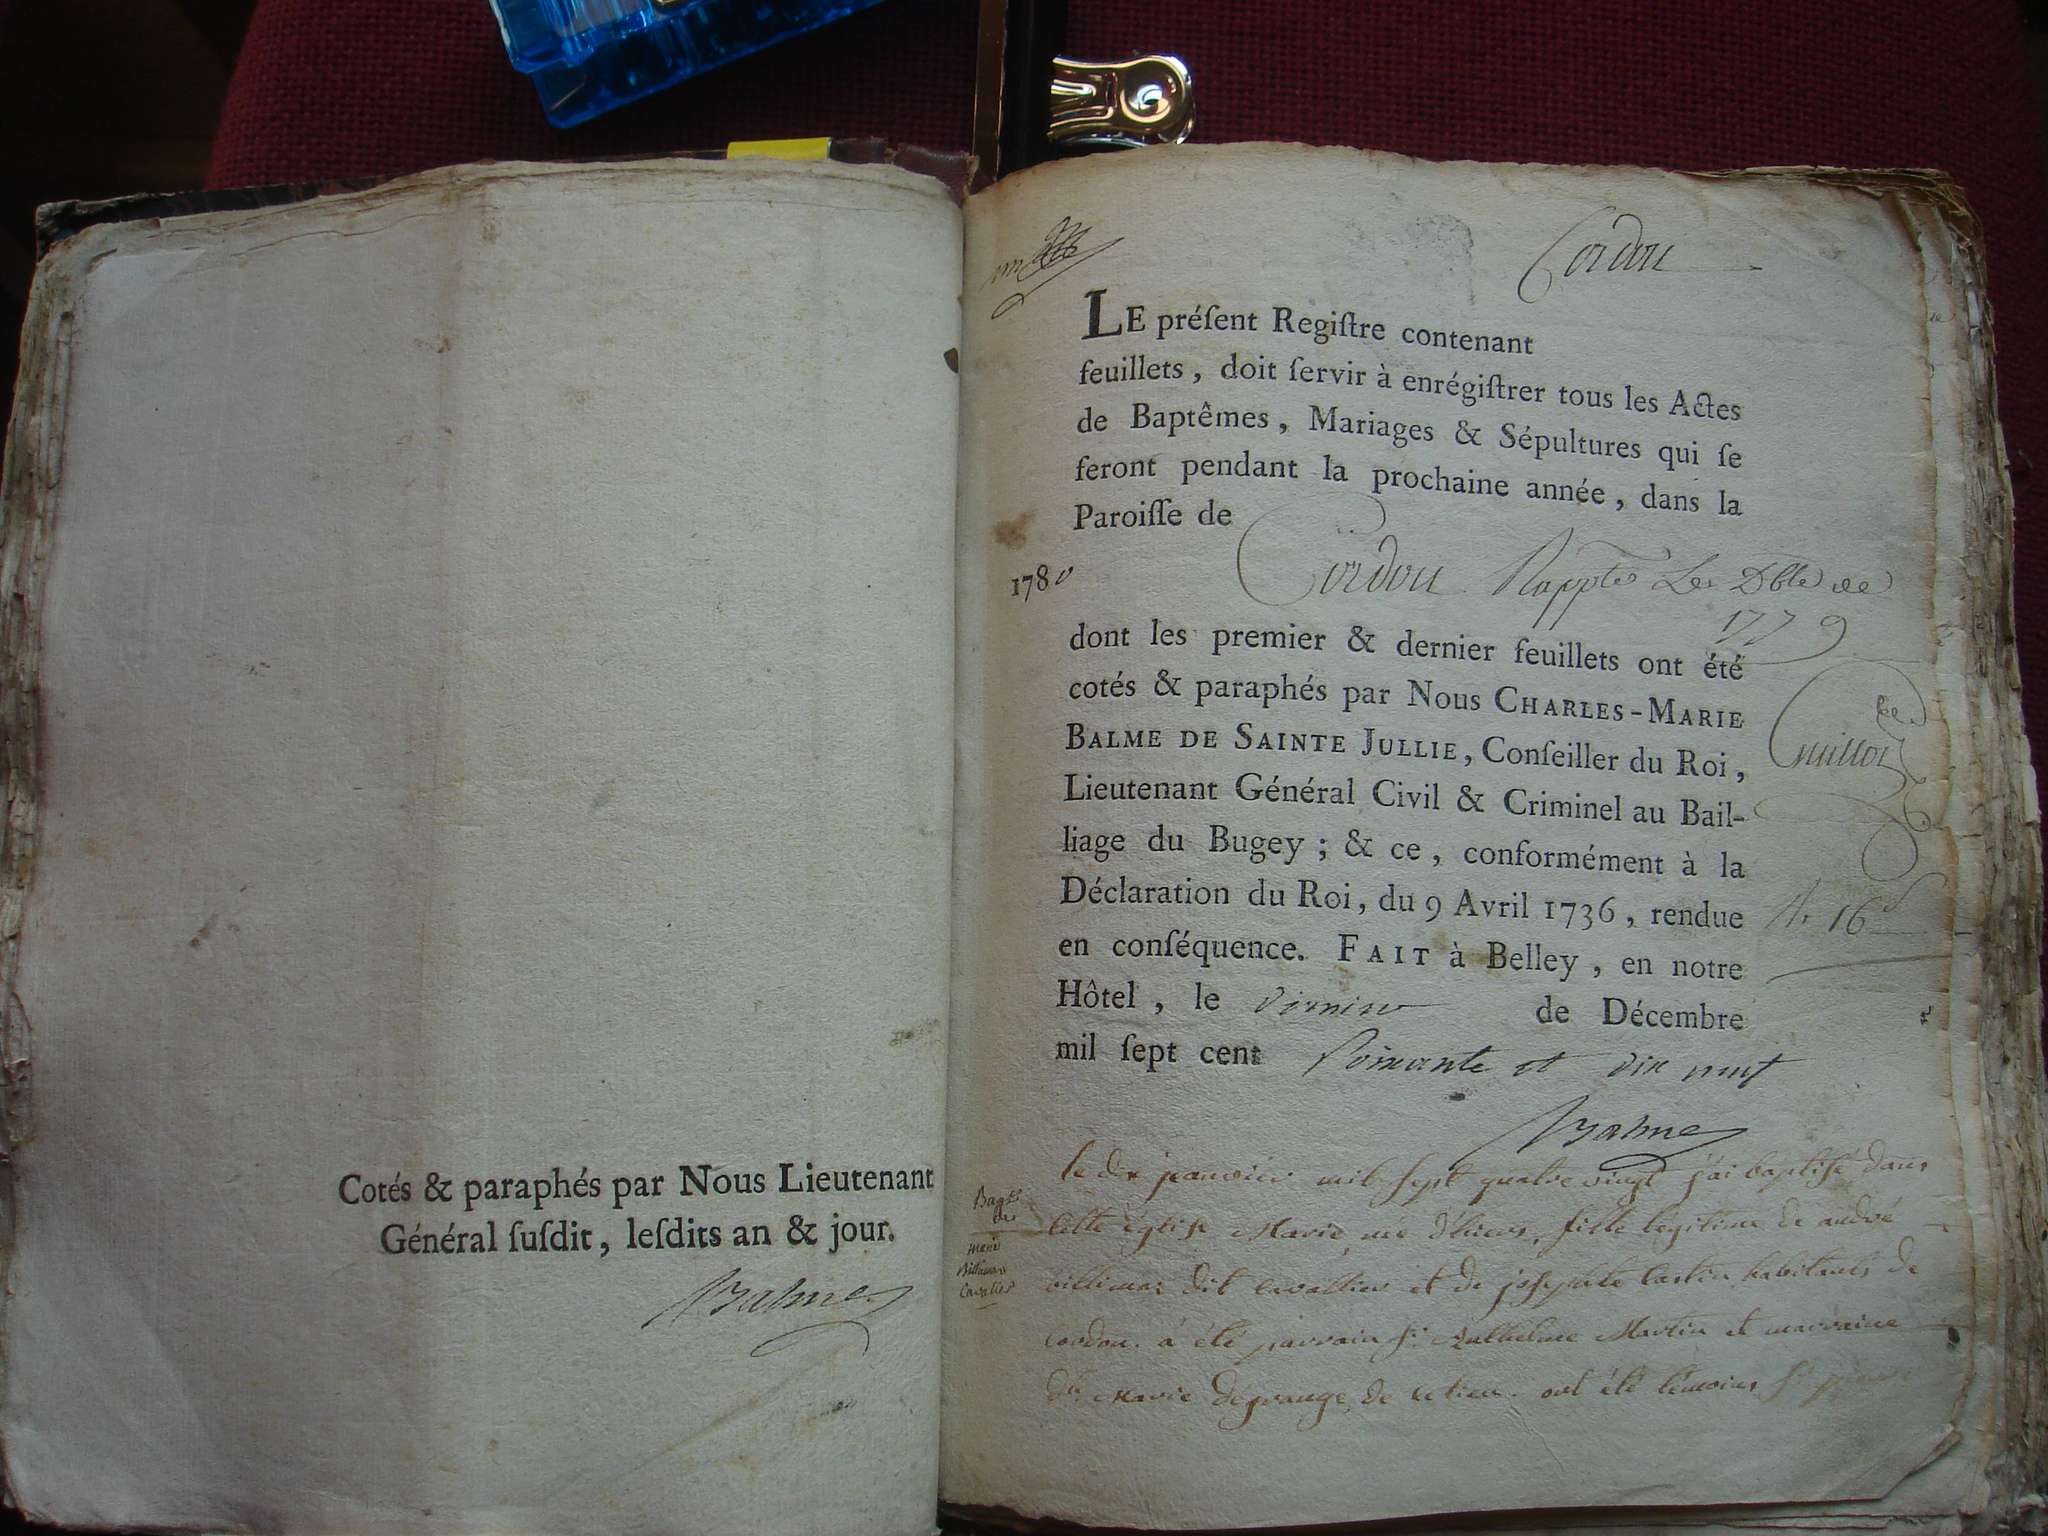 Cotés & paraphés par Nous Lieutenant
Général ſuſdit, leſdits an & jour.
Balme
Cordon
LE préſent Regiſtre contenant
feuillets, doit ſervir à enrégiſtrer tous les Actes
de Baptêmes, Mariages & Sépultures qui ſe
feront pendant la prochaine année, dans la
Paroiſſe de
1780
Cordon
1779
dont les premier & dernier feuillets ont été
cotés & paraphés par Nous CHARLES-MARIE
BALME DE SAINTE JULLIE, Conſeiller du Roi,
Lieutenant Général Civil & Criminel au Bail-
liage du Bugey ; & ce, conformément à la
Déclaration du Roi, du 9 Avril 1736, rendue
en conſéquence. FAIT à Belley, en notre
Hôtel, le dernier de Décembre
mil ſept cent soixante et dix neuf
Balme
le dix janvier mil sept quatre vingt j'ai baptisé dans
cette église Marie, née d'hier, fille légitime de andré
dit cavallier et de josephte habitants de
Cordon. à été parrain Sr. Anthelme Martin et marraine
Marie de ce lieu. ont été témoins Sr